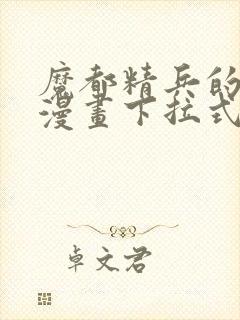 魔都精兵的
漫畫下拉式
卓文君